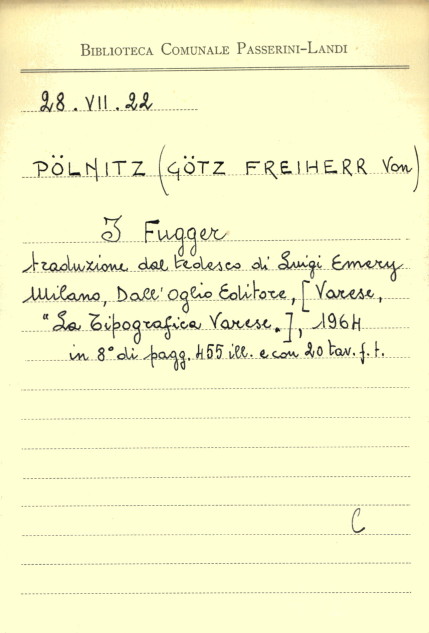 BIBLIOTECA COMUNALE PASSERINI-LANDI
28.VII.22
PÖLNITZ (GÖTZ FREIHERR Von)
I Fugger
traduzione dal tedesco di Luigi Emery
Milano, Dall'Oglio Editore, [Varese,
"La Tipografica Varese.], 1964
in 8° di pagg. 455 ill. e con 20 tav. f. t.
C